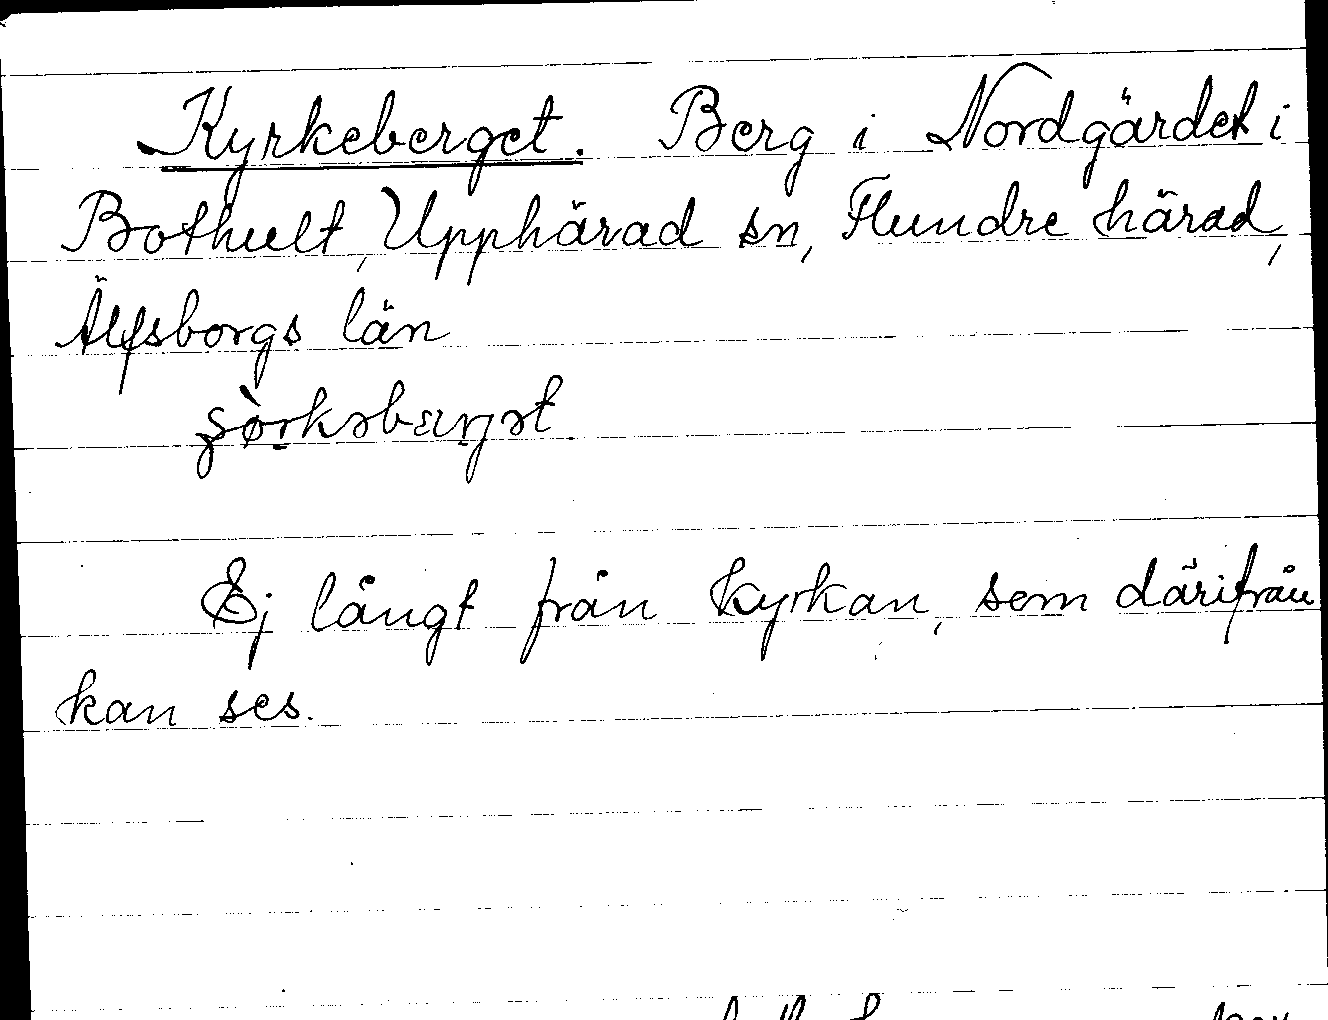 Kyrkeberget. Berg i Nordgärdet i
Bothult, Upphärad sn, Flundre härad,
Älfsborgs län
Ej långt från kyrkan, som därifrån
kan ses.